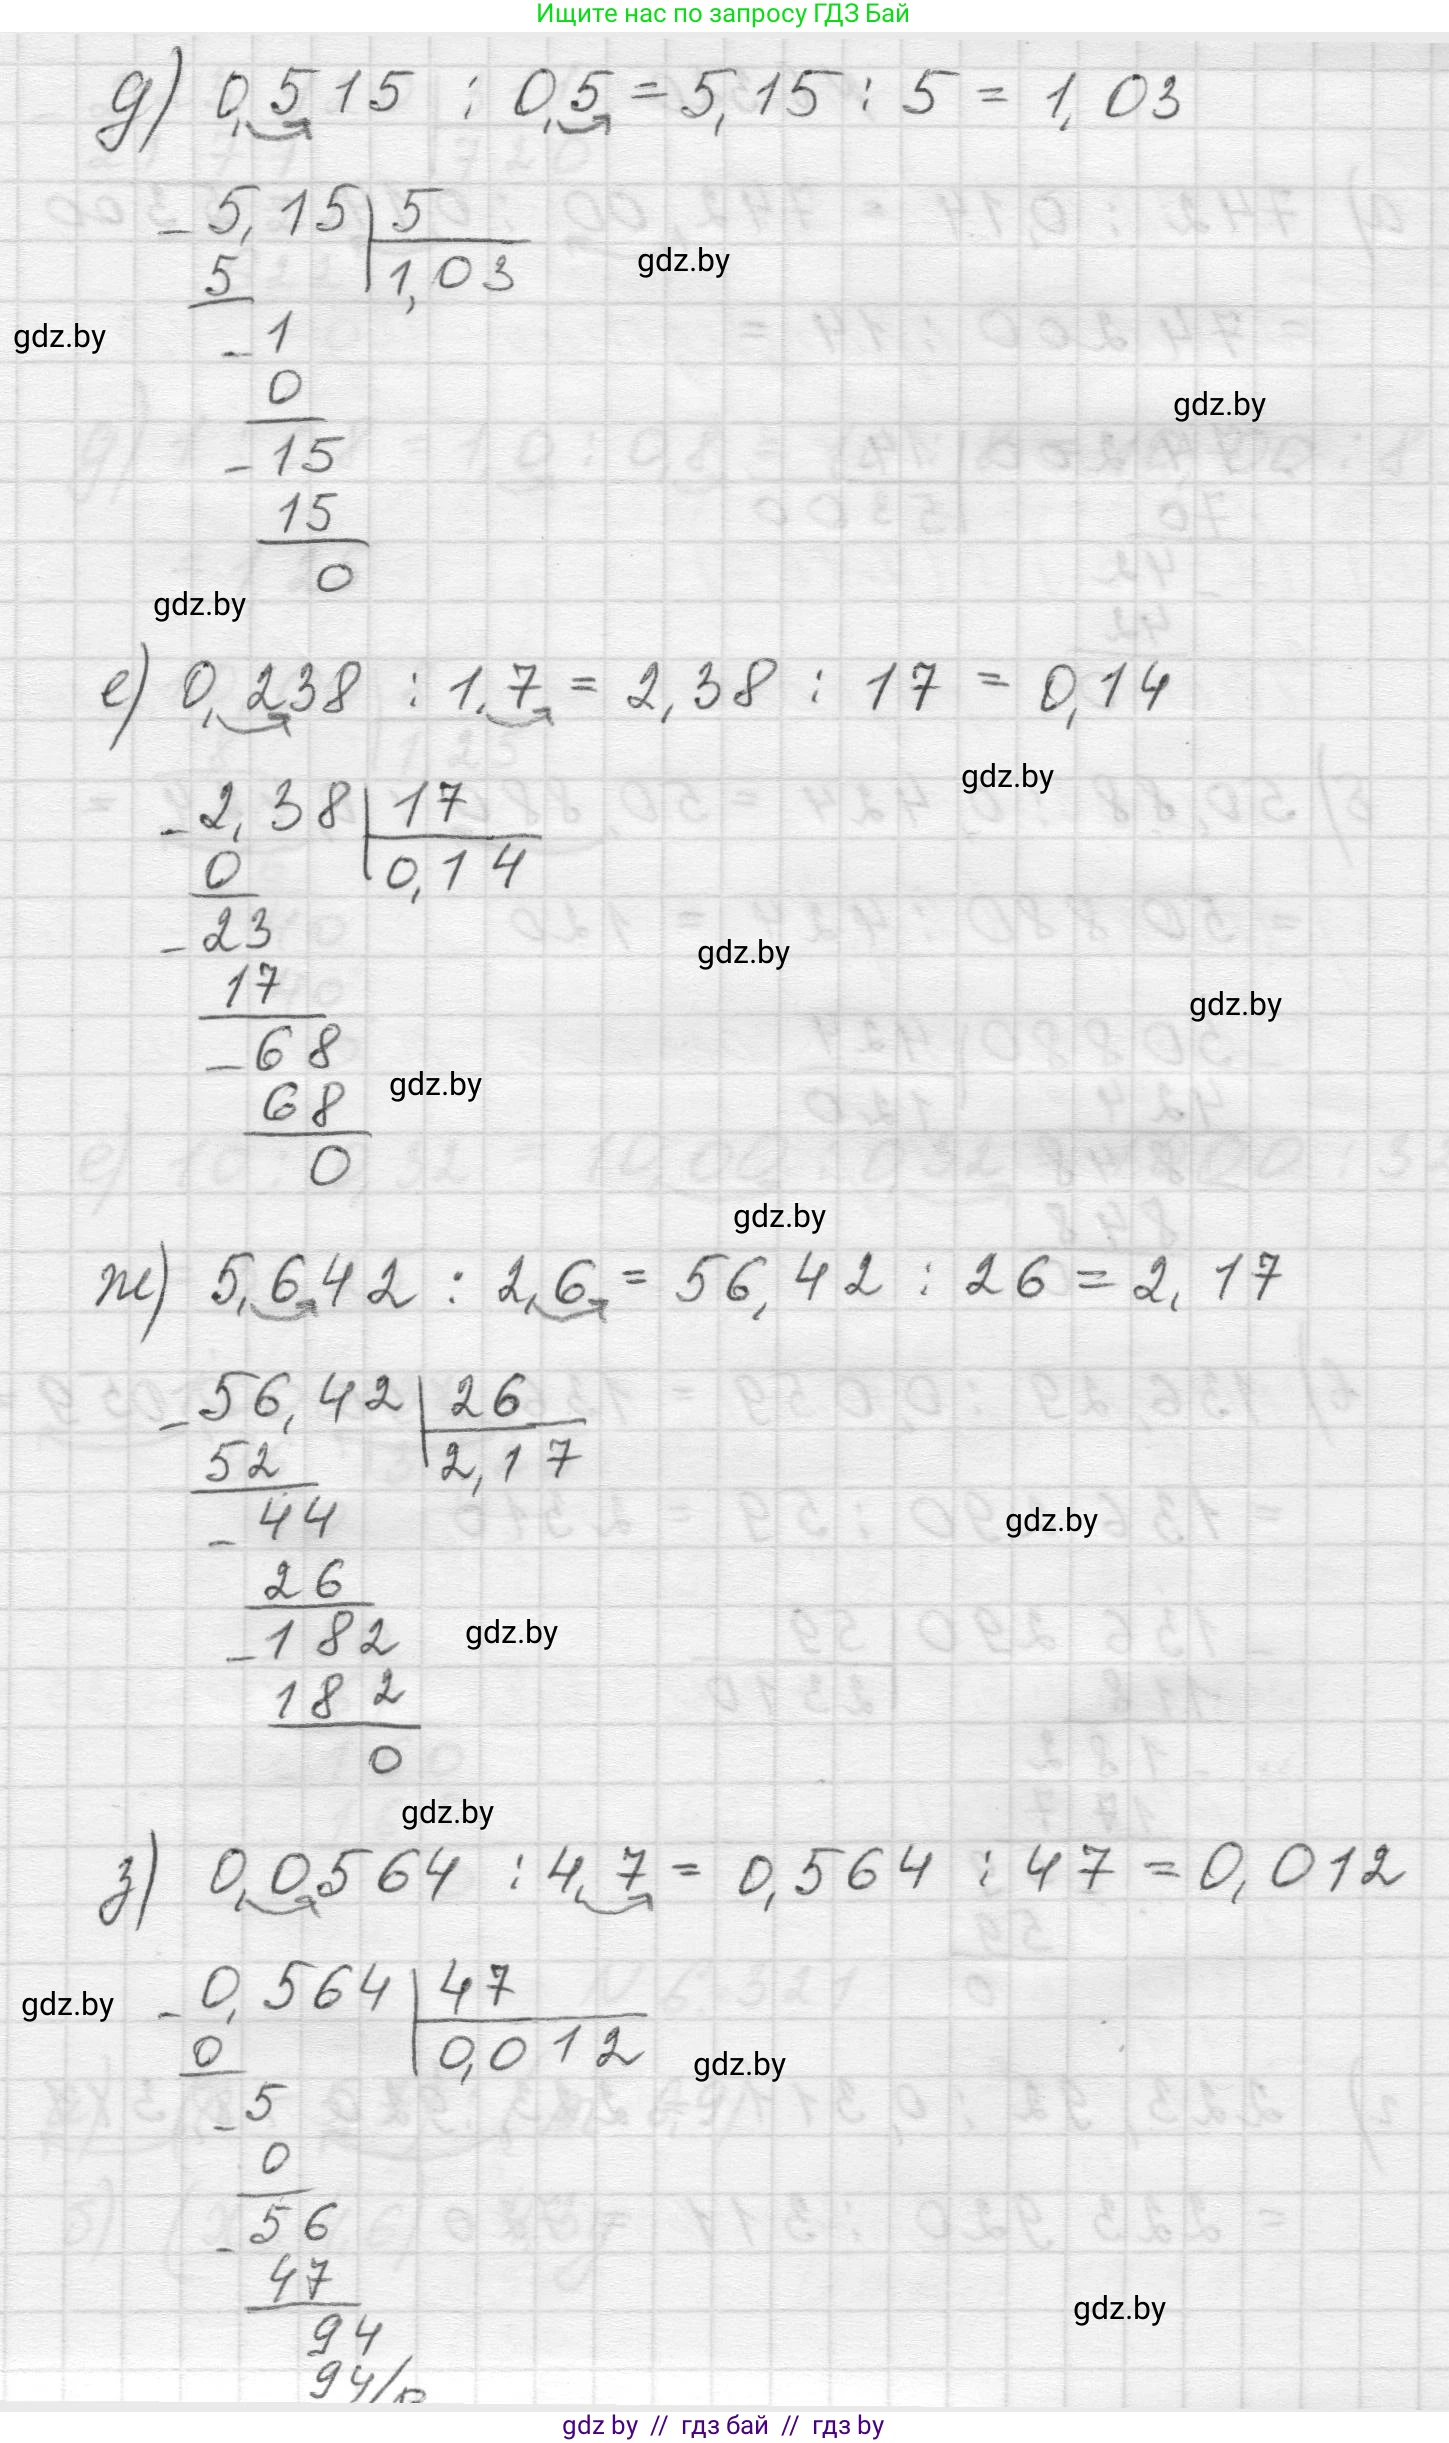 Ищите нас по запросу ГДЗ Бай
д) 0,515 : 0,5 = 5,15 : 5 = 1,03
- 5,15 | 5
5 | 1,03
gdz.by
- 1
gdz.by
0
gdz.by
- 15
15
0
gdz.by
е) 0,238 : 1,7 = 2,38 : 17 = 0,14
gdz.by
- 2,38 | 17
0 | 0,14
- 23
gdz.by
17
gdz.by
- 68
gdz.by
68
0
gdz.by
ж) 5,642 : 2,6 = 56,42 : 26 = 2,17
- 56,42 | 26
52 | 2,17
- 44
gdz.by
26
- 182
gdz.by
182
0
gdz.by
з) 0,0564 : 4,7 = 0,564 : 47 = 0,012
- 0,564 | 47
gdz.by
0 | 0,012
gdz.by
- 5
0
- 56
47
gdz.by
94
94
gdz by // гдз бай // гдз by